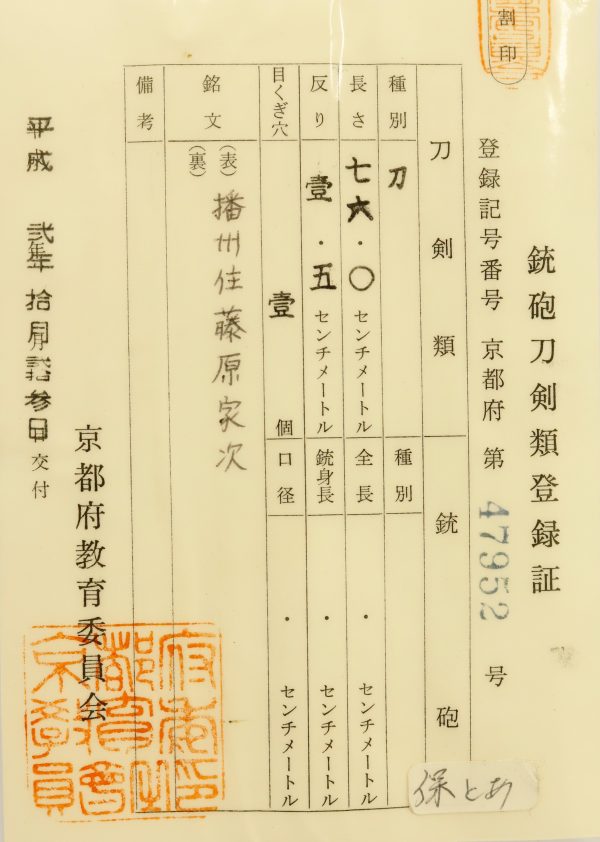 割印
銃砲刀剣類登録証
登録記号番号 京都府 第 47952 号
刀剣類
銃砲
種別 刀
種別
長さ 七六・〇センチメートル
全長 ・ センチメートル
反り 壹・五センチメートル
銃身長 ・ センチメートル
目くぎ穴 壹個
口径 ・ センチメートル
銘文 (表) 播州住藤原家次
(裏)
備考
京都府教育委員会
平成 弐年 拾月 弐拾参日 交付
保とあ